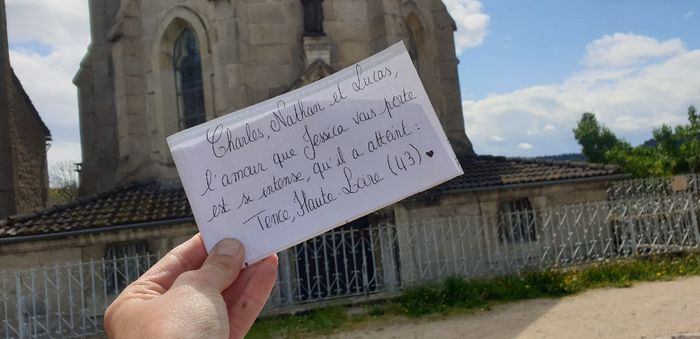 Charles, Nathan et Lucas,
l'amour que Jessica vous porte
est si intense, qu'il a atteint :
Tence, Haute-Loire (43). ♥